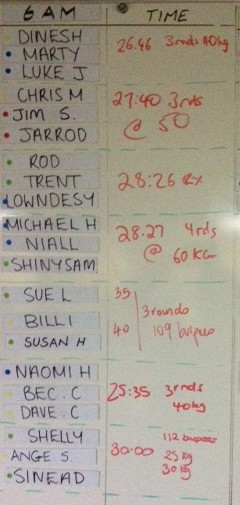 6 AM TIME
DINESH
MARTY 26.46 3rnds 40kg
LUKE J
CHRIS M 27:40 3rds
JIM S. @ 50
JARROD
ROD
TRENT 28:26 RX
LOWNDESY
MICHAEL H 28.27 4rds
NIALL @ 60 KG
SHINYSAM
SUE L 35
BILLI 3rounds
40 109 burpees
SUSAN H
NAOMI H
BEC. C 25:35 3rnds
DAVE. C 40kg
SHELLY 112 burpees
ANGE S. 30:00 25kg
SINEAD 30kg